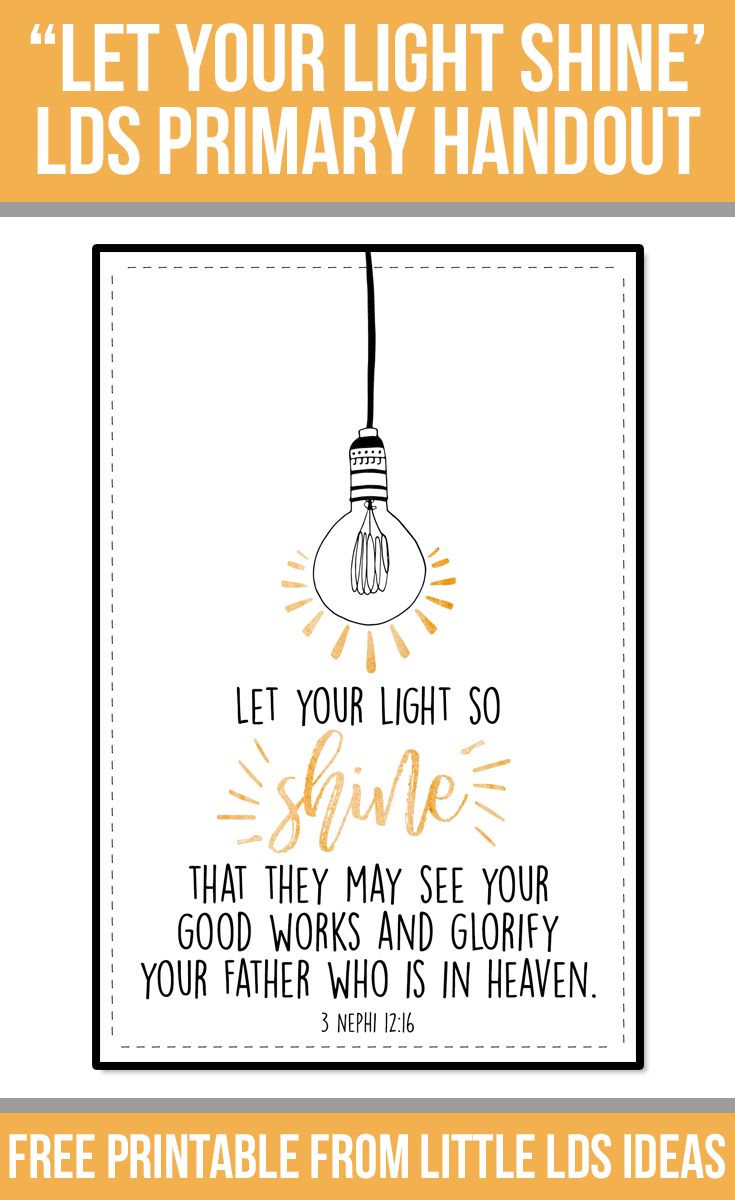 “LET YOUR LIGHT SHINE’
LDS PRIMARY HANDOUT
LET YOUR LIGHT SO
shine
THAT THEY MAY SEE YOUR
GOOD WORKS AND GLORIFY
YOUR FATHER WHO IS IN HEAVEN.
3 NEPHI 12:16
FREE PRINTABLE FROM LITTLE LDS IDEAS